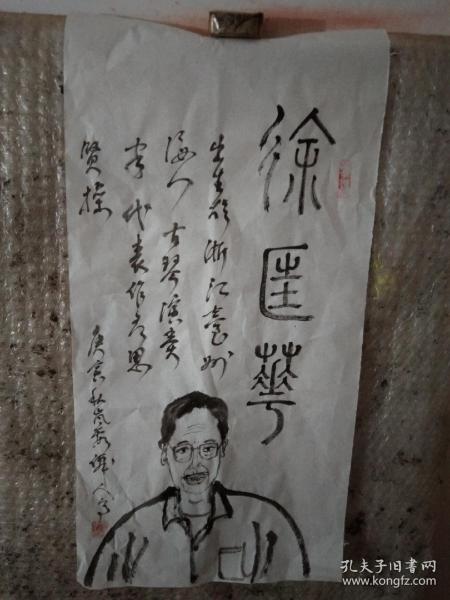 徐匡華
出生於浙江臺州
海人 古琴演奏
家 代表作為思
賢操
庚寅秋
孔夫子旧书网
www.kongfz.com